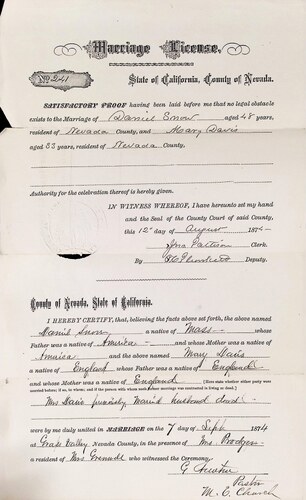 Marriage License,
No 241
State of California, County of Nevada.
SATISFACTORY PROOF having been laid before me that no legal obstacle
exists to the Marriage of Daniel Snow aged 48 years,
resident of Nevada County, and Mary Davis
aged 33 years, resident of Nevada County.
Authority for the celebration thereof is hereby given.
IN WITNESS WHEREOF, I have hereunto set my hand
and the Seal of the County Court of said County,
this 12th day of August 1874
Clerk.
By Deputy.
County of Nevada, State of California.
I HEREBY CERTIFY, that, believing the facts above set forth, the above named
Daniel Snow a native of Mass whose
Father was a native of America and whose Mother was a native of
America and the above named Mary Davis
a native of England whose Father was a native of England
and whose Mother was a native of England [Non state whether either party were
married before; if so, to whom; and if the person with whom such former marriage was contracted is living or dead.]
Mrs Davis previously Married husband dead
were by me duly united in MARRIAGE on the 7 day of Sept 1874
at Grass Valley Nevada County, in the presence of Mrs
resident of who witnessed the Ceremony.
Pastor
M. E. Church